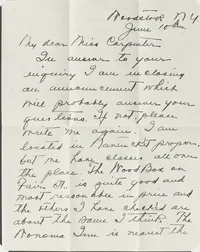 Woodstock N.Y.
June 10th
My dear Miss Carpenter
In answer to your
inquiry I am inclosing
an announcement which
will probably answer your
questions. If not please
write me again. I am
located in Nantucket proper
but we have classes all over
the place. The Wood Box on
Fair St. is quite good and
most reasonable in price and
the others I have checked are
about the same I think. The
Wonoma Inn is nearest the